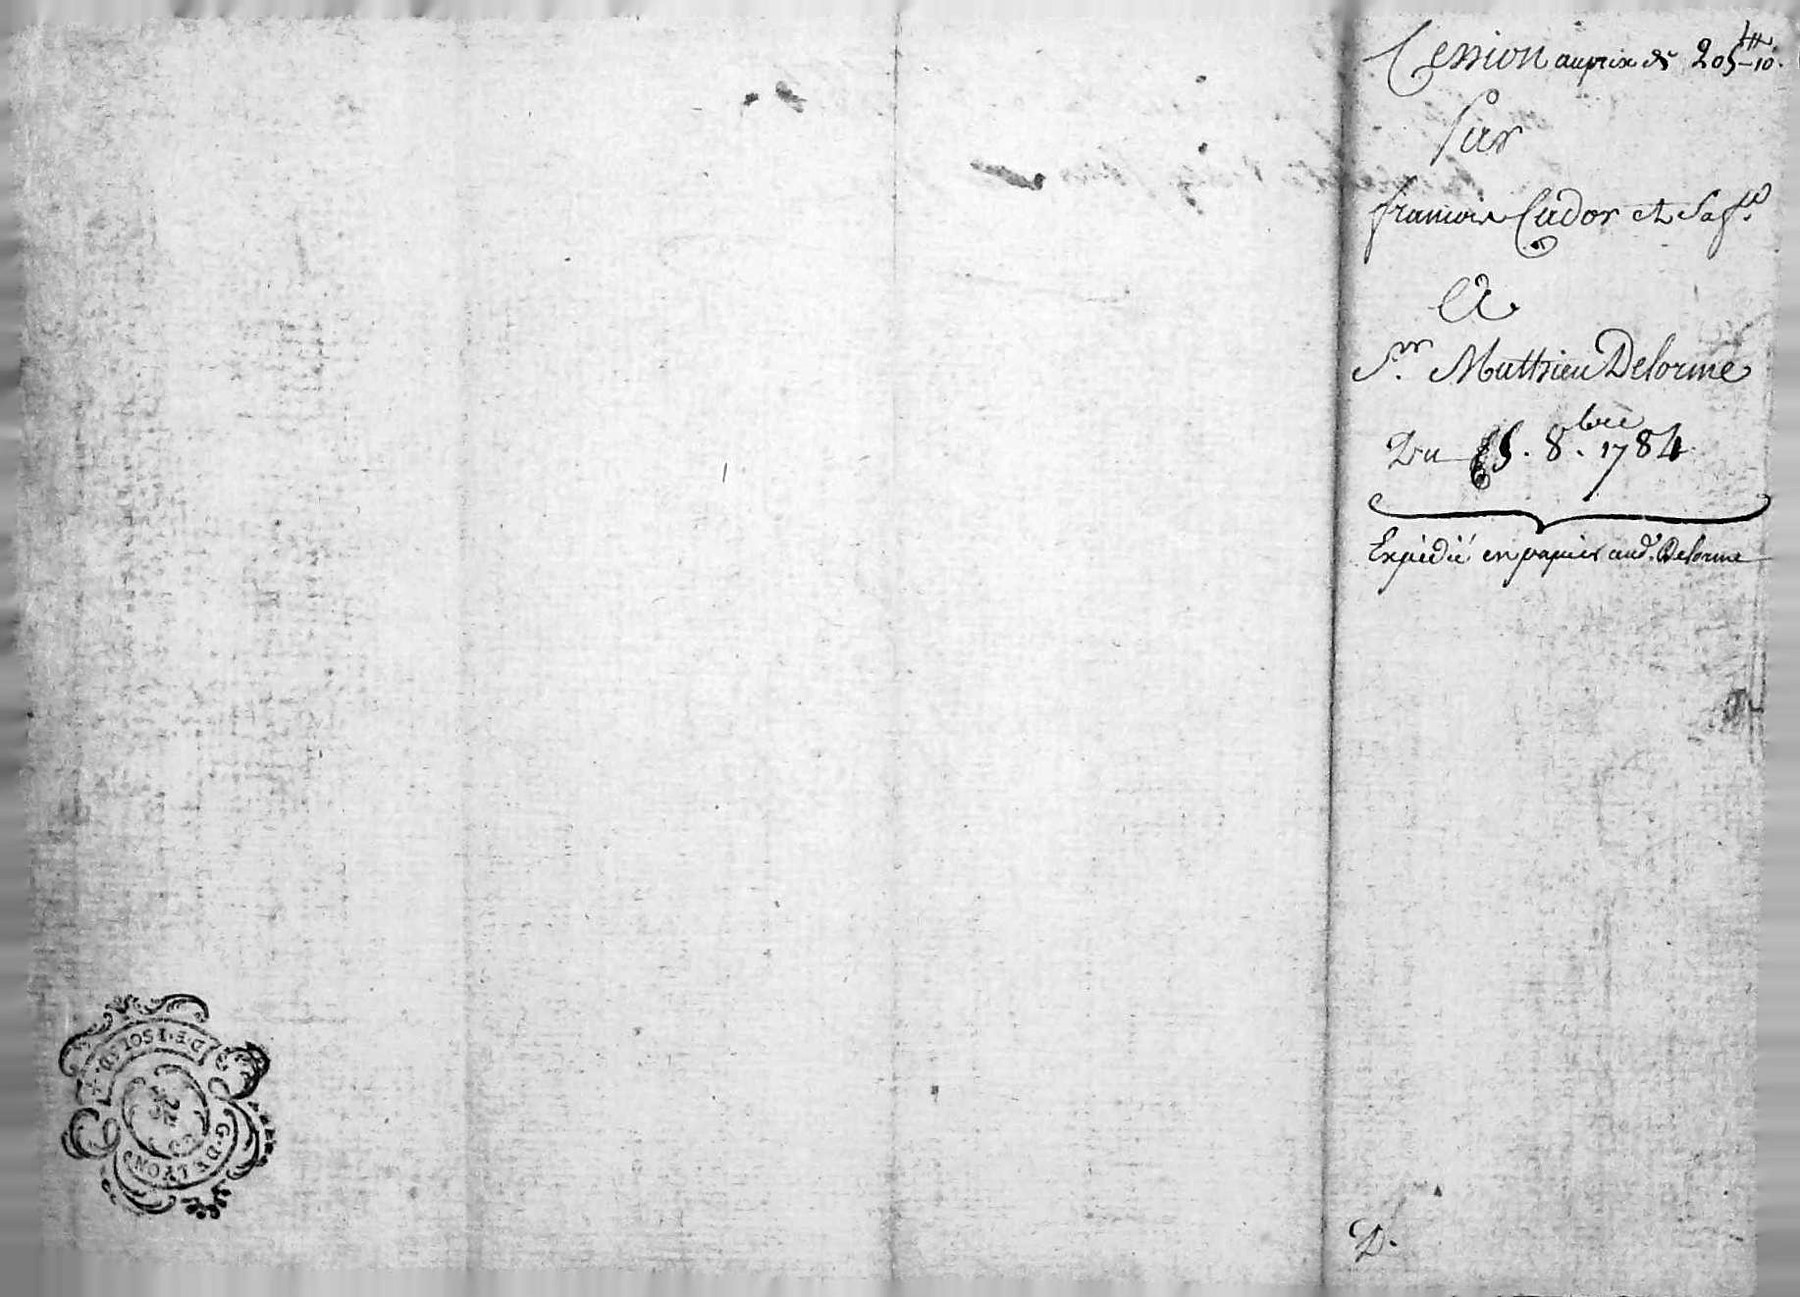 Cession au prix de 205ᵗᵗ-10.
Par
francois Cador et Sa fe.
A
Sr. Matthieu Delorme
Du 15. 8.bre 1784
Expédié en papier aud. Delorme
D.
G. DE LYON